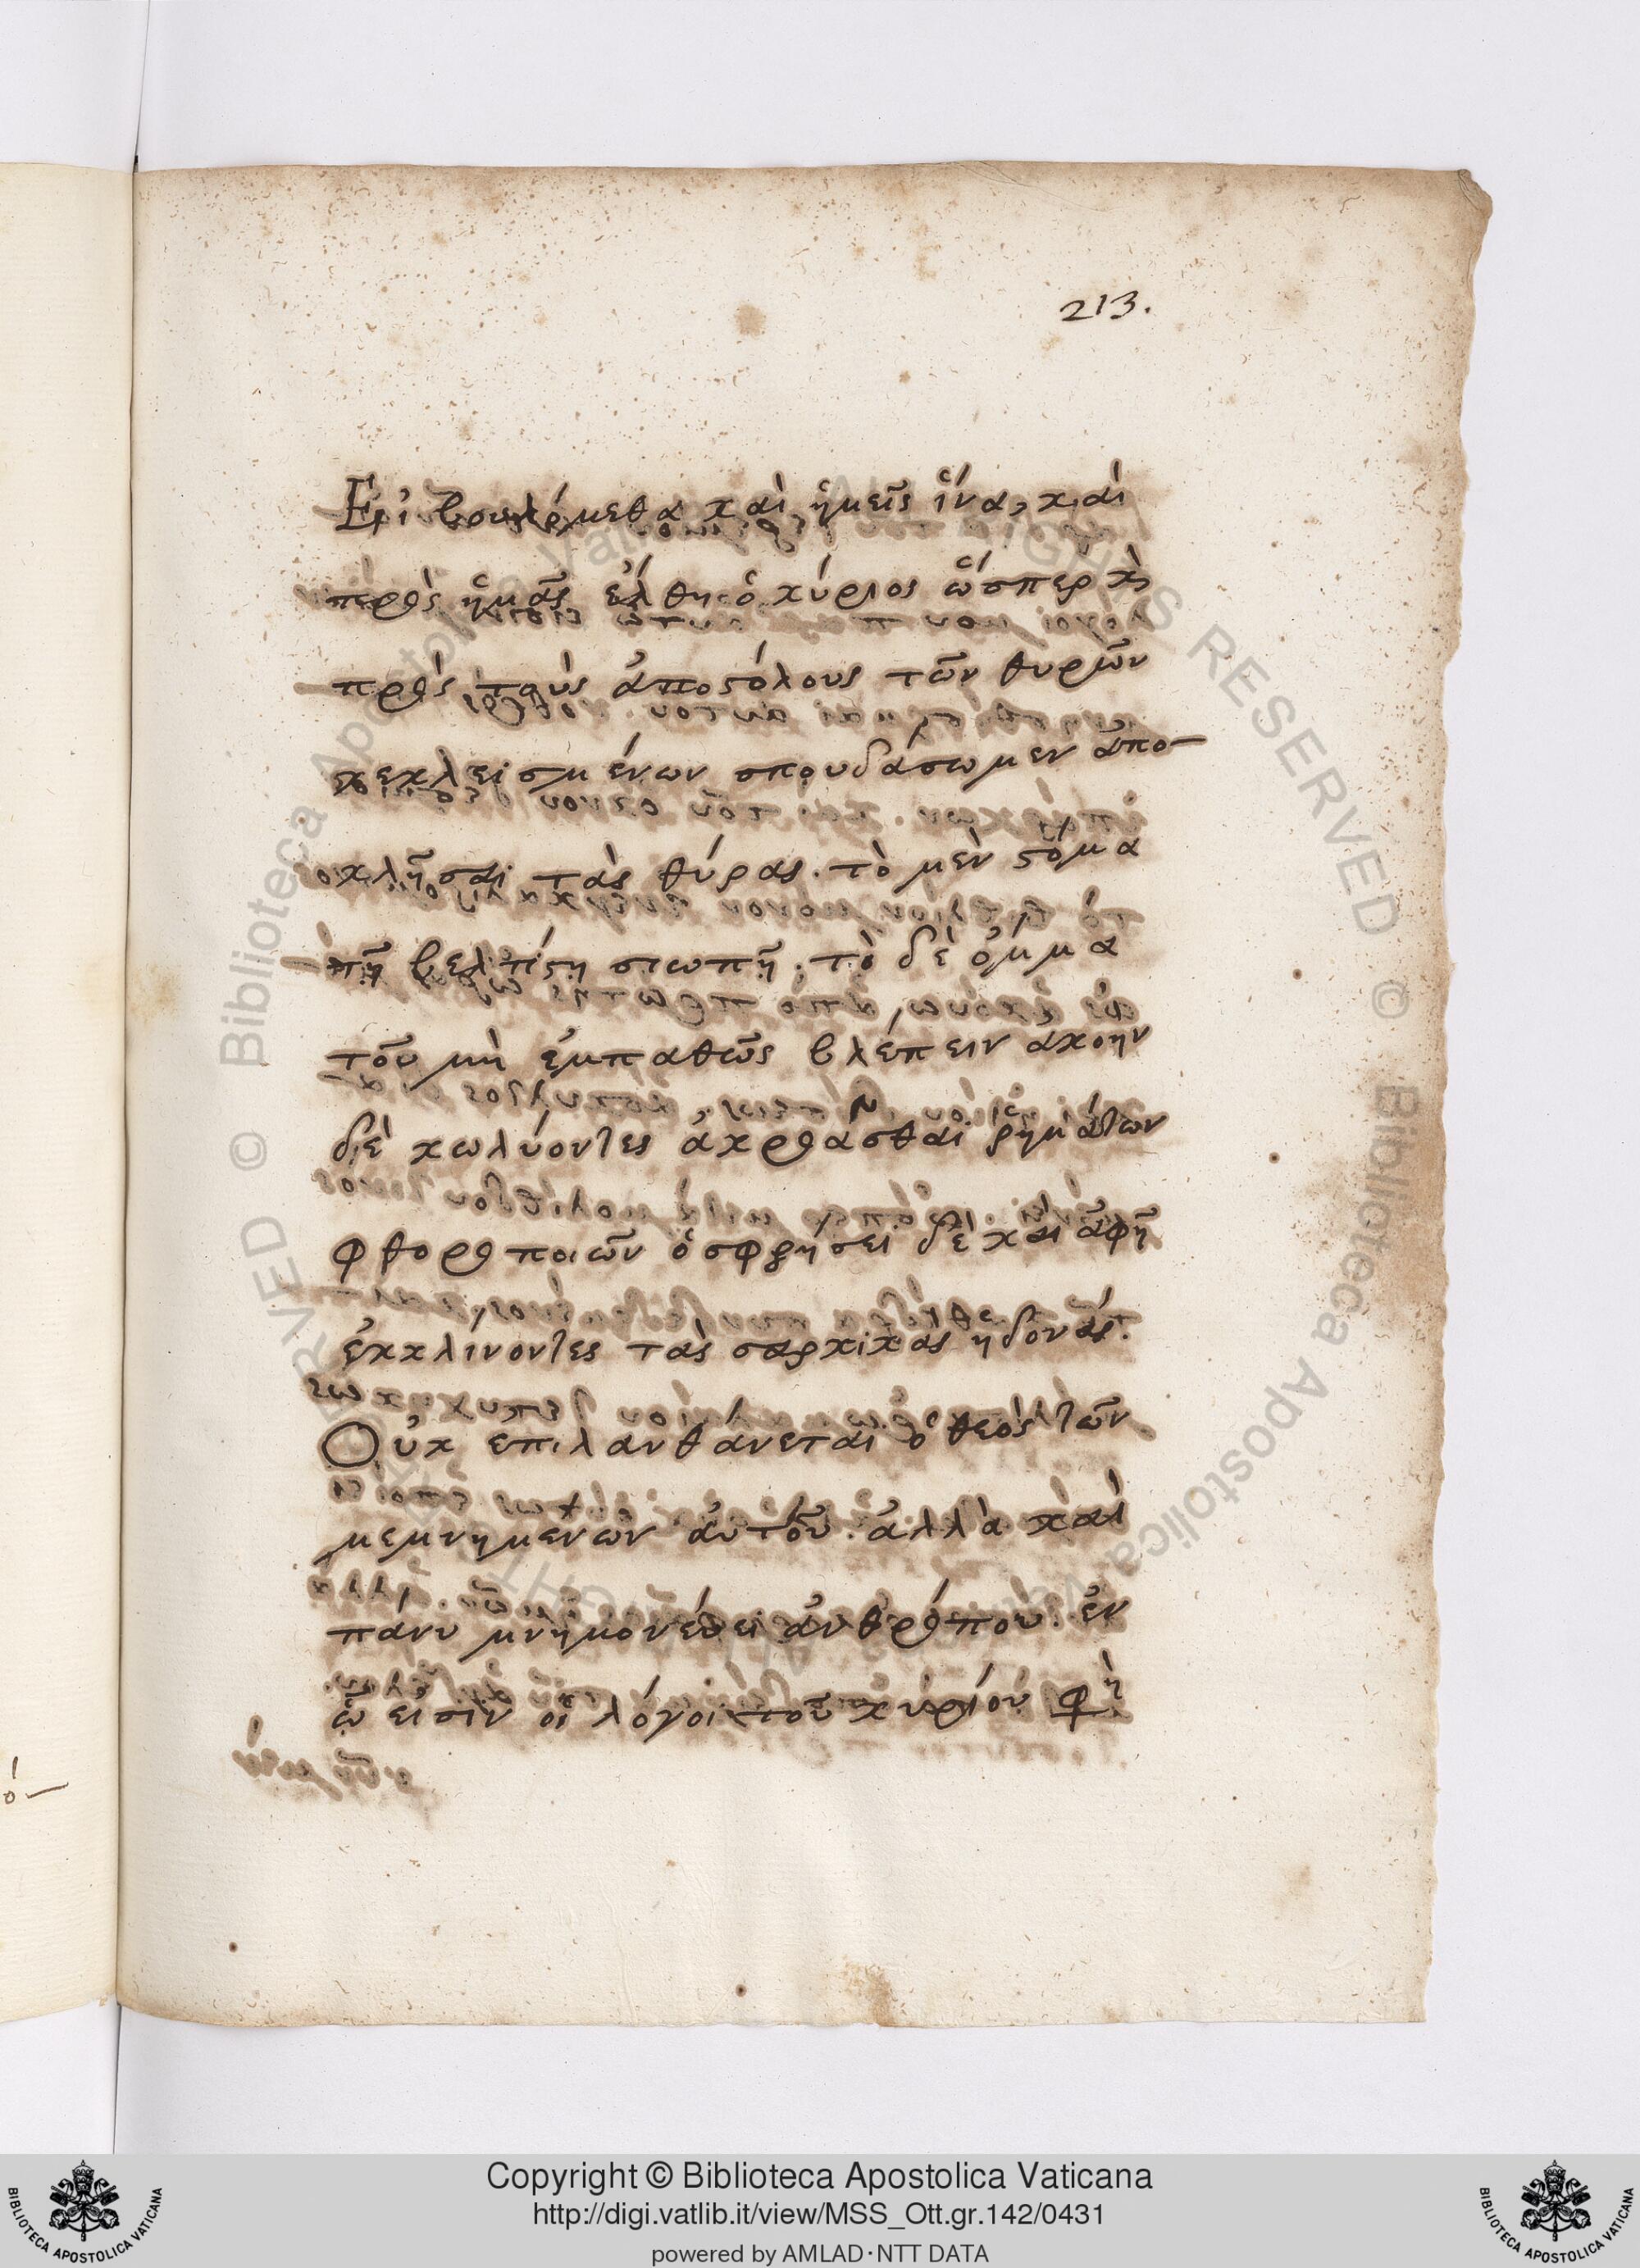 213.
Εἰ βουλόμεθα καὶ ἡμεῖς ἵνα, καὶ
πρὸς ἡμᾶς ἔλθη ὁ κύριος ὥσπερ κὶ
πρὸς τοὺς ἀποστόλους τῶν θυρῶν
κεκλεισμένων σπουδάσωμεν ἀπο-
κλῆσαι τὰς θύρας. τὸ μὲν στόμα
τῆ βελτίστη σιωπῆ. τὸ δὲ ὄμμα
τοῦ μὴ ἐμπαθῶς βλέπειν ἀκοὴν
δὲ κωλύοντες ἀκροᾶσθαι ῥημάτων
φθοροποιῶν ὀσφρήσει δὲ καὶ ἀφῆ
ἐκκλίνοντες τὰς σαρκικὰς ἡδονάς.
Οὐκ ἐπιλανθάνεται ὁ θεὸς τῶν
μεμνημένων αὐτοῦ. ἀλλὰ καὶ
πάνυ μνημονεύει ἀνθρώπου. ἐν
ὧ εἰσὶν οἱ λόγοι τοῦ κυρίου φὴ
Copyright © Biblioteca Apostolica Vaticana
http://digi.vatlib.it/view/MSS_Ott.gr.142/0431
powered by AMLAD·NTT DATA
BIBLIOTECA APOSTOLICA VATICANA
BIBLIOTECA APOSTOLICA VATICANA